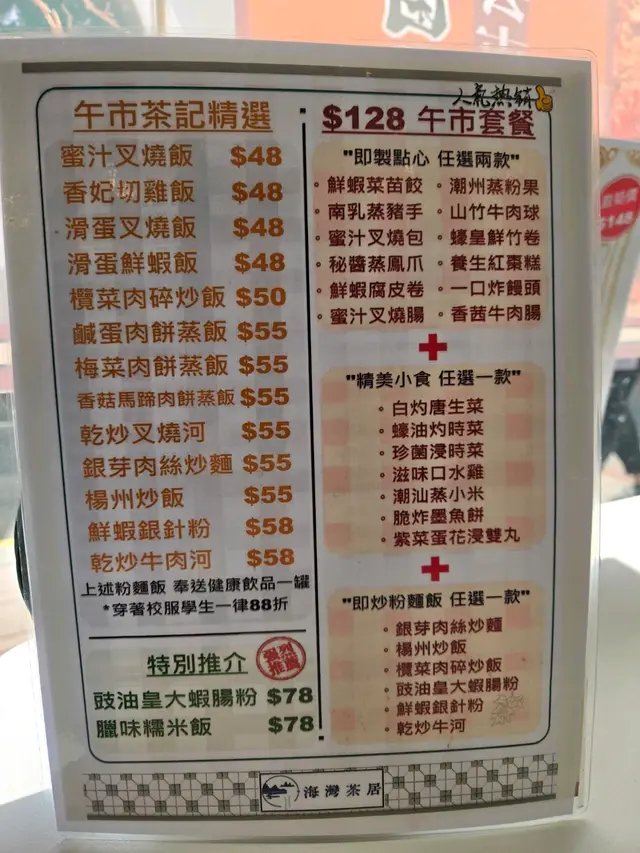 午市茶記精選
蜜汁叉燒飯 $48
香妃切雞飯 $48
滑蛋叉燒飯 $48
滑蛋鮮蝦飯 $48
欖菜肉碎炒飯 $50
鹹蛋肉餅蒸飯 $55
梅菜肉餅蒸飯 $55
香菇馬蹄肉餅蒸飯 $55
乾炒叉燒河 $55
銀芽肉絲炒麵 $55
楊州炒飯 $55
鮮蝦銀針粉 $58
乾炒牛肉河 $58
上述粉麵飯 奉送健康飲品一罐
*穿著校服學生一律88折
特別推介
強烈
推薦
豉油皇大蝦腸粉 $78
臘味糯米飯 $78
人氣熱銷
$128 午市套餐
"即製點心 任選兩款"
・鮮蝦菜苗餃 ・潮州蒸粉果
・南乳蒸豬手 ・山竹牛肉球
・蜜汁叉燒包 ・蠔皇鮮竹卷
・秘醬蒸鳳爪 ・養生紅棗糕
・鮮蝦腐皮卷 ・一口炸饅頭
・蜜汁叉燒腸 ・香茜牛肉腸
+
"精美小食 任選一款"
・白灼唐生菜
・蠔油灼時菜
・珍菌浸時菜
・滋味口水雞
・潮汕蒸小米
・脆炸墨魚餅
・紫菜蛋花浸雙丸
+
"即炒粉麵飯 任選一款"
・銀芽肉絲炒麵
・楊州炒飯
・欖菜肉碎炒飯
・豉油皇大蝦腸粉
・鮮蝦銀針粉
・乾炒牛河
海灣茶居